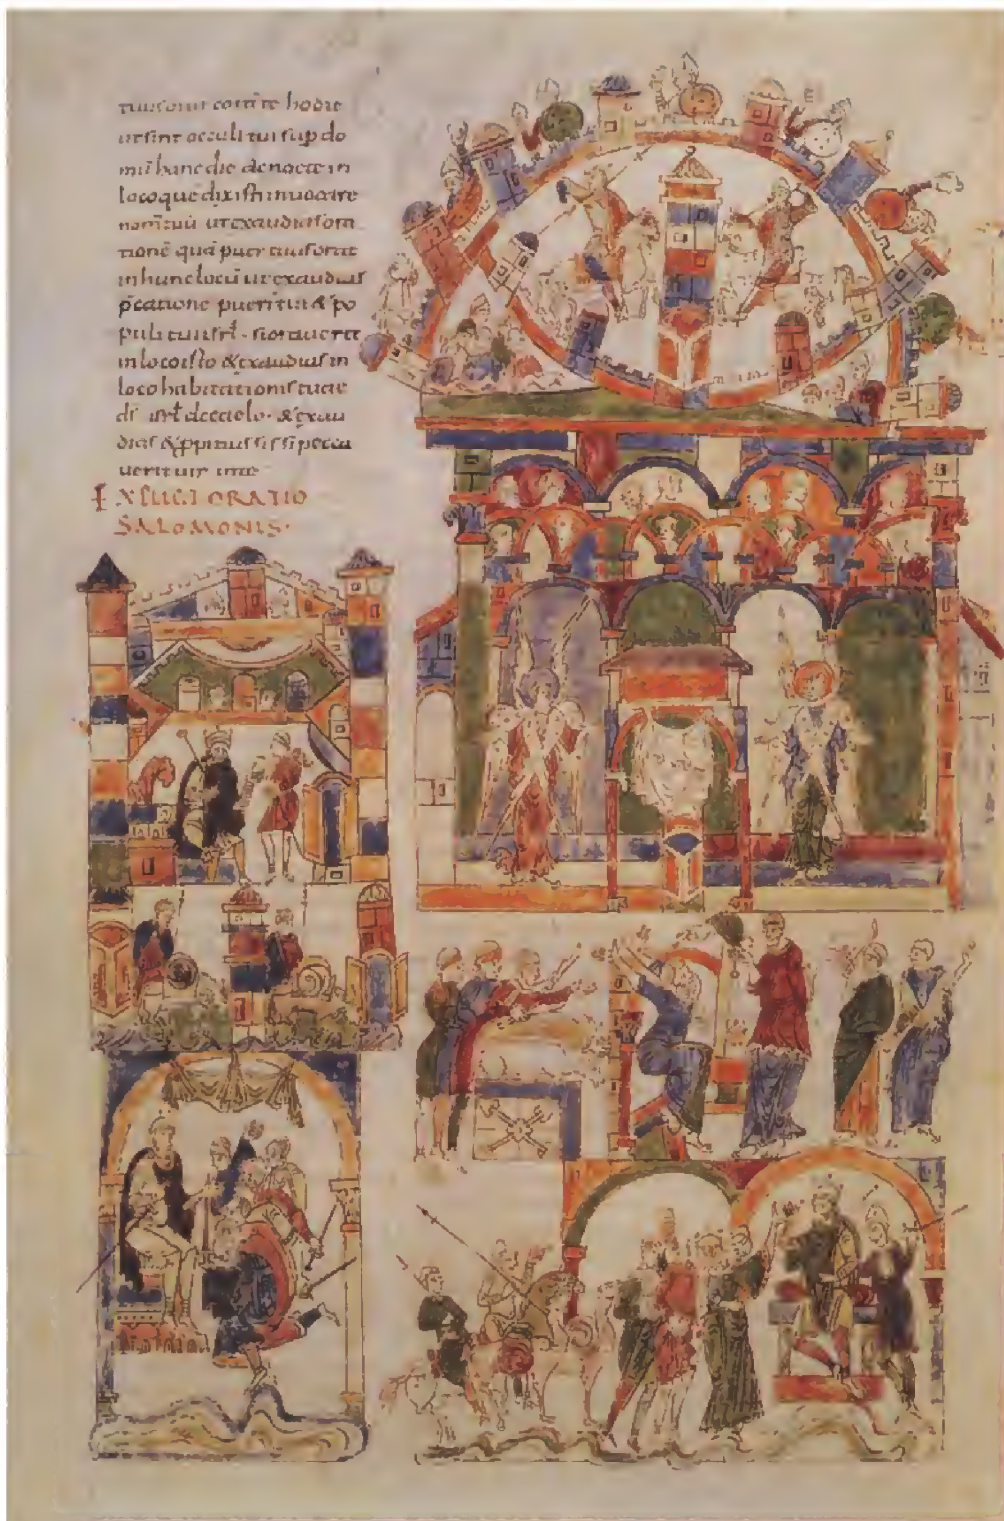 tui s orat coram te hodie
ut sint occuli tui sup do
mū hanc die ac nocte in
loco que dixisti inuocare
nom̄ tuū ut exaudias ora
tionē quā puer tuus orat
in hunc locū ut exaudias
p̄catione pueri tui & po
puli tui isrł · si orauerit
in loco isto & exaudias in
loco habitationis tuae
dī isrł de caelo · & exau
dias & ppitius sis si pecca
uerit uir in te
EXPLICIT ORATIO
SALOMONIS·